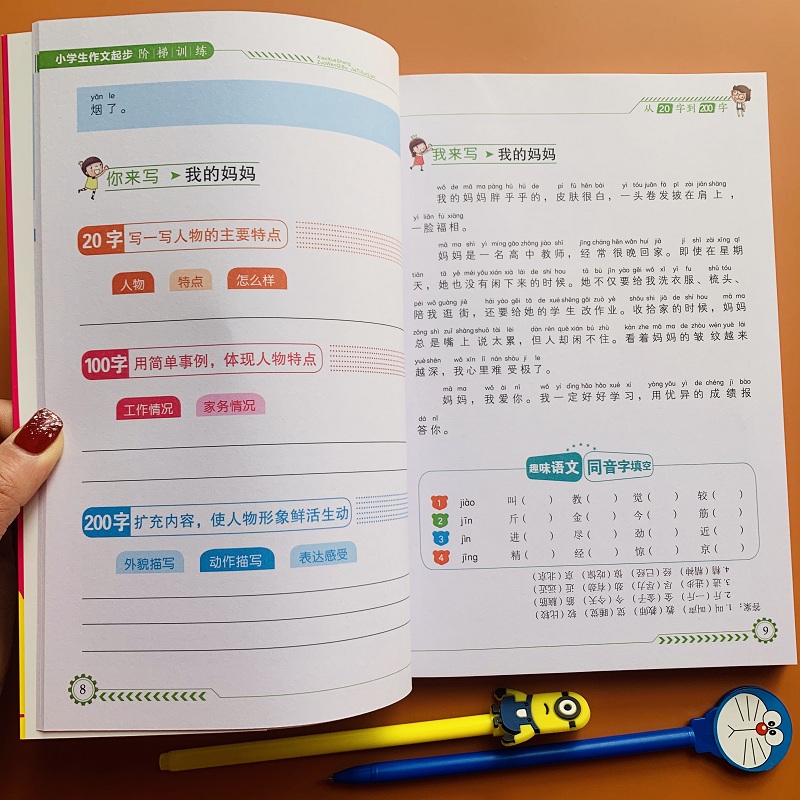 小学生作文起步 阶梯训练
yān le
烟了。
你来写 ➤ 我的妈妈
20字 写一写人物的主要特点
人物 特点 怎么样
100字 用简单事例，体现人物特点
工作情况 家务情况
200字 扩充内容，使人物形象鲜活生动
外貌描写 动作描写 表达感受
8
从20字到200字
我来写 ➤ 我的妈妈
wǒ de mā ma pàng hū hū de pí fū hěn bái yì tóu juǎn fà pī zài jiān shàng
我的妈妈胖乎乎的，皮肤很白，一头卷发披在肩上，
yì liǎn fú xiàng
一脸福相。
mā ma shì yì míng gāo zhōng jiào shī jīng cháng hěn wǎn huí jiā jí shǐ zài xīng qī
妈妈是一名高中教师，经常很晚回家。即使在星期
tiān tā yě méi yǒu xián xià lái de shí hou tā bù jǐn yào gěi wǒ xǐ yī fu shū tóu
天，她也没有闲下来的时候。她不仅要给我洗衣服、梳头、
péi wǒ guàng jiē hái yào gěi tā de xué shēng gǎi zuò yè shōu shi jiā de shí hou mā ma
陪我逛街，还要给她的学生改作业。收拾家的时候，妈妈
zǒng shì zuǐ shàng shuō tài lèi dàn rén què xián bú zhù kàn zhe mā ma de zhòu wén yuè lái
总是嘴上说太累，但人却闲不住。看着妈妈的皱纹越来
yuè shēn wǒ xīn lǐ nán shòu jí le
越深，我心里难受极了。
mā ma wǒ ài nǐ wǒ yí dìng hǎo hǎo xué xí yòng yōu yì de chéng jì bào
妈妈，我爱你。我一定好好学习，用优异的成绩报
dá nǐ
答你。
趣味语文 同音字填空
1 jiào 叫( ) 教( ) 觉( ) 较( )
2 jīn 斤( ) 金( ) 今( ) 筋( )
3 jìn 进( ) 尽( ) 劲( ) 近( )
4 jīng 精( ) 经( ) 惊( ) 京( )
答案：1. 叫(叫声) 教(教师) 觉(睡觉) 较(比较)
2. 斤(一斤) 金(金子) 今(今天) 筋(脑筋)
3. 进(进步) 尽(尽力) 劲(有劲) 近(远近)
4. 精(精神) 经(已经) 惊(吃惊) 京(北京)
9